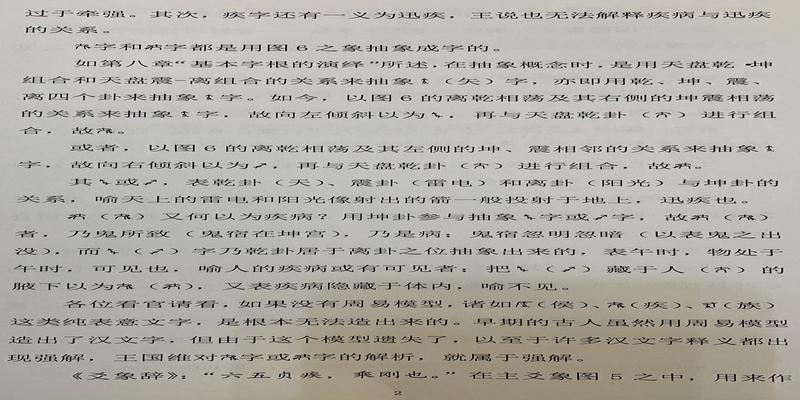 过于牵强。其次，疾字还有一义为迅疾，王说也无法解释疾病与迅疾
的关系。
字和字都是用图6之象抽象成字的。
如第八章“基本字根的演绎”所述，在抽象概念时，是用天盘乾-坤
组合和天盘震-离组合的关系来抽象（矢）字，亦即用乾、坤、震、
离四个卦来抽象字。如今，以图6的离乾相荡及其右侧的坤震相荡
的关系来抽象字，故向左倾斜以为，再与天盘乾卦（）进行组
合，故。
或者，以图6的离乾相荡及其左侧的坤、震相邻的关系来抽象
字，故向右倾斜以为，再与天盘乾卦（）进行组合，故。
其或，表乾卦（天）、震卦（雷电）和离卦（阳光）与坤卦的
关系，喻天上的雷电和阳光像射出的箭一般投射于地上，迅疾也。
（）又何以为疾病？用坤卦参与抽象字或字，故（）
者，乃鬼所致（鬼宿在坤宫），乃是病；鬼宿忽明忽暗（以表鬼之出
没），而（）字乃乾卦居于离卦之位抽象出来的，表午时，物处于
午时，可见也，喻人的疾病或有可见者；把（）藏于人（）的
腋下以为（），又表疾病隐藏于体内，喻不见。
各位看官请看，如果没有周易模型，诸如（侯）、（疾）、（族）
这类纯表意文字，是根本无法造出来的。早期的古人虽然用周易模型
造出了汉文字，但由于这个模型遗失了，以至于许多汉文字释义都出
现强解，王国维对字或字的解析，就属于强解。
《爻象辞》：“六五贞疾，乘刚也。”在主爻象图5之中，用来作
2